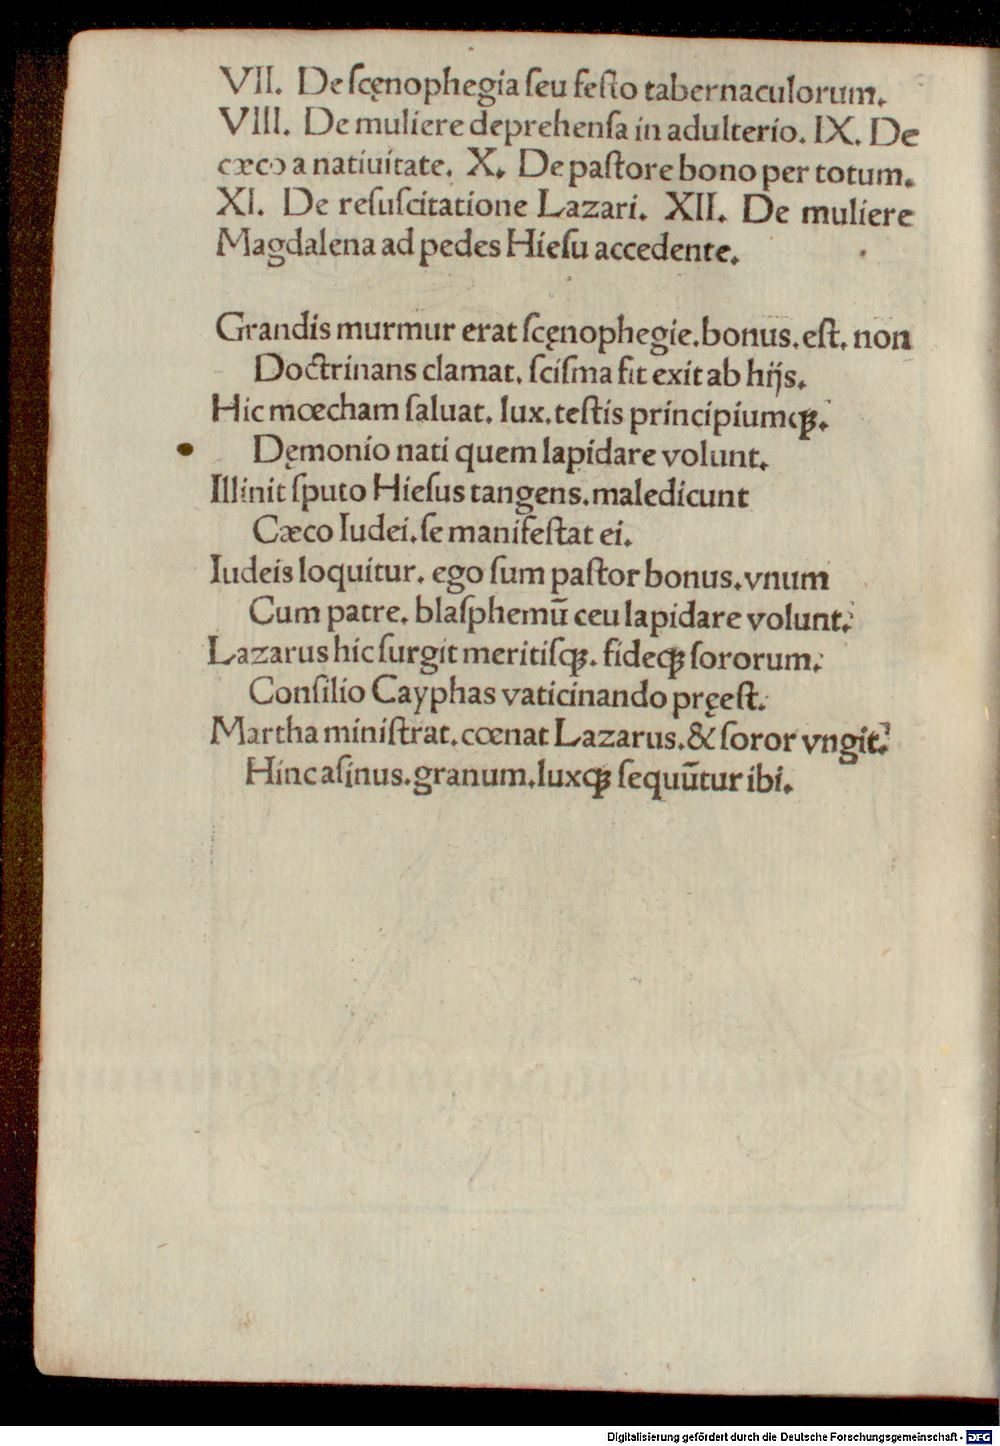 VII. De ſcęnophegia ſeu feſto tabernaculorum.
VIII. De muliere deprehenſa in adulterio. IX. De
cæco a natiuitate. X. De paſtore bono per totum.
XI. De reſuſcitatione Lazari. XII. De muliere
Magdalena ad pedes Hieſu accedente.
Grandis murmur erat ſcęnophegie. bonus. eſt. non
Doctrinans clamat. ſciſma fit exit ab hijs.
Hic mœcham ſaluat. lux. teſtis principiumqꝫ.
Dęmonio nati quem lapidare volunt.
Illinit ſputo Hieſus tangens. maledicunt
Cæco Iudei. ſe manifeſtat ei.
Iudeis loquitur. ego ſum paſtor bonus. vnum
Cum patre. blaſphemū ceu lapidare volunt.
Lazarus hic ſurgit meritiſqꝫ. fideqꝫ ſororum.
Conſilio Cayphas vaticinando pręeſt.
Martha miniſtrat. cœnat Lazarus. & ſoror vngit.
Hinc aſinus. granum. luxqꝫ ſequūtur ibi.
Digitalisierung gefördert durch die Deutsche Forschungsgemeinschaft - DFG